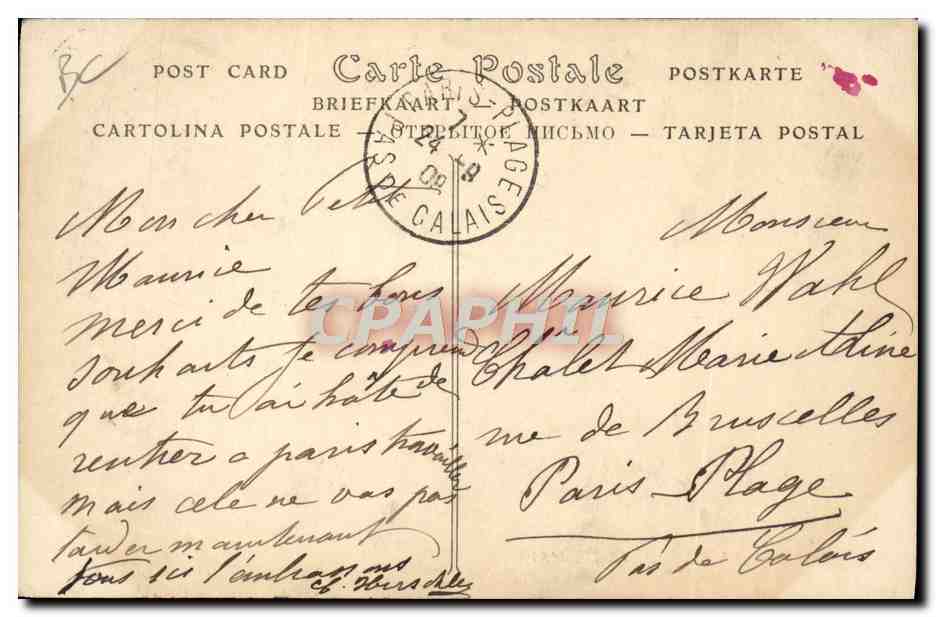 BC
POST CARD Carte Postale POSTKARTE
BRIEFKAART — POSTKAART
CARTOLINA POSTALE — ОТКРЫТОЕ ПИСЬМО — TARJETA POSTAL
PARIS-PLAGE
PAS DE CALAIS
24 -8
09
Mon cher Petit
Maurice
merci de tes bons
souhaits je comprend
que tu ai hâte de
rentrer a paris travailler
mais cele ne vas pas
tarder maintenant
tous ici t'embrassons
Monsieur
Maurice Wahl
Chalet Marie Aline
rue de Bruxelles
Paris-Plage
Pas de Calais
CPAPHIL